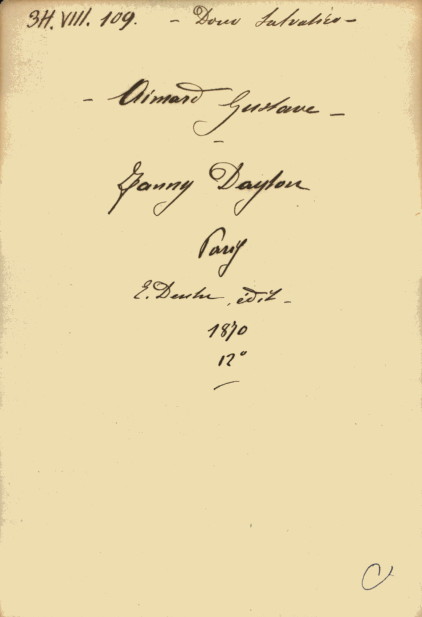 34. VIII. 109. - Dono Salvatico -
- Aimard Gustave -
-
Fanny Dayton
Paris
E. Dentu, édit -
1870
12°